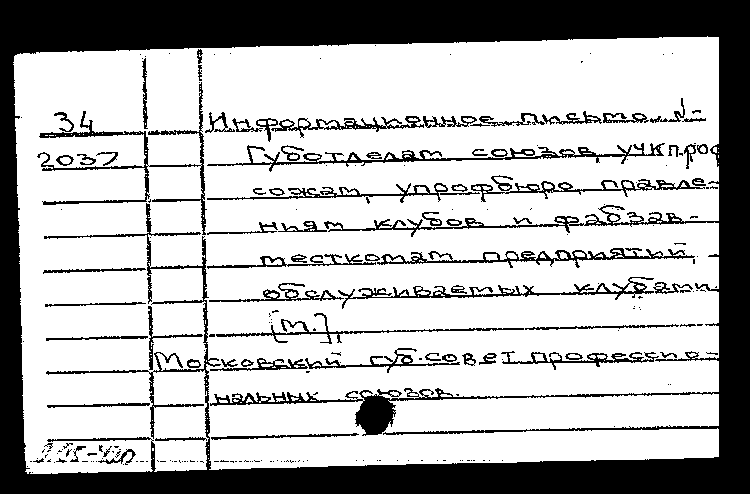 34 Информационное письмо №-
2037 Губотделам союзов, учкпроф
сожам, упрофбюро, правле-
ниям клубов и фабзав-
месткомам предприятий,-
обслуживаемых клубами.
[М.],
Московский губ.совет професс­ио-
нальных союзов.